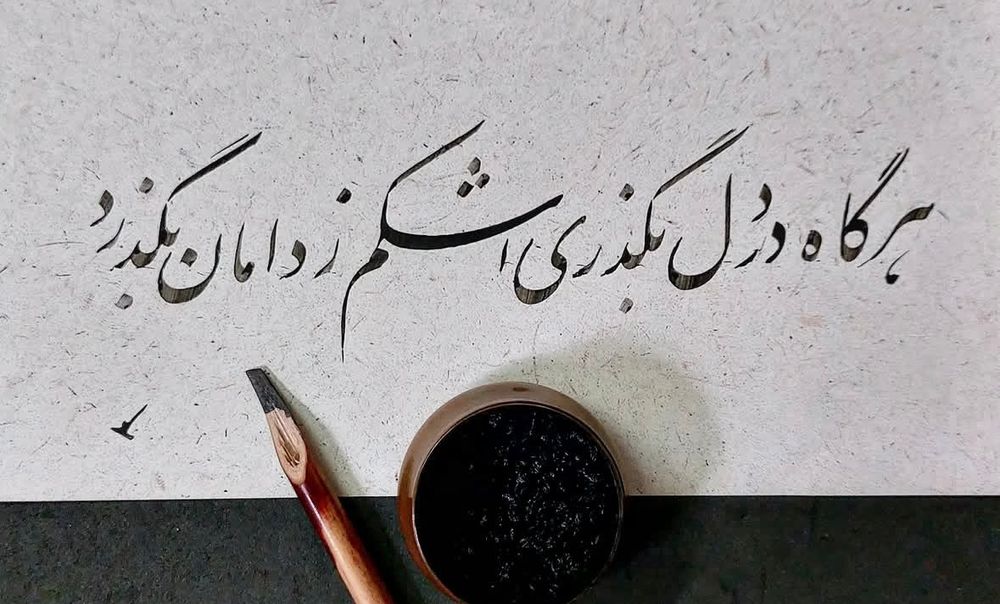 هرگاه در دل بگذری اشکم ز دامان بگذرد